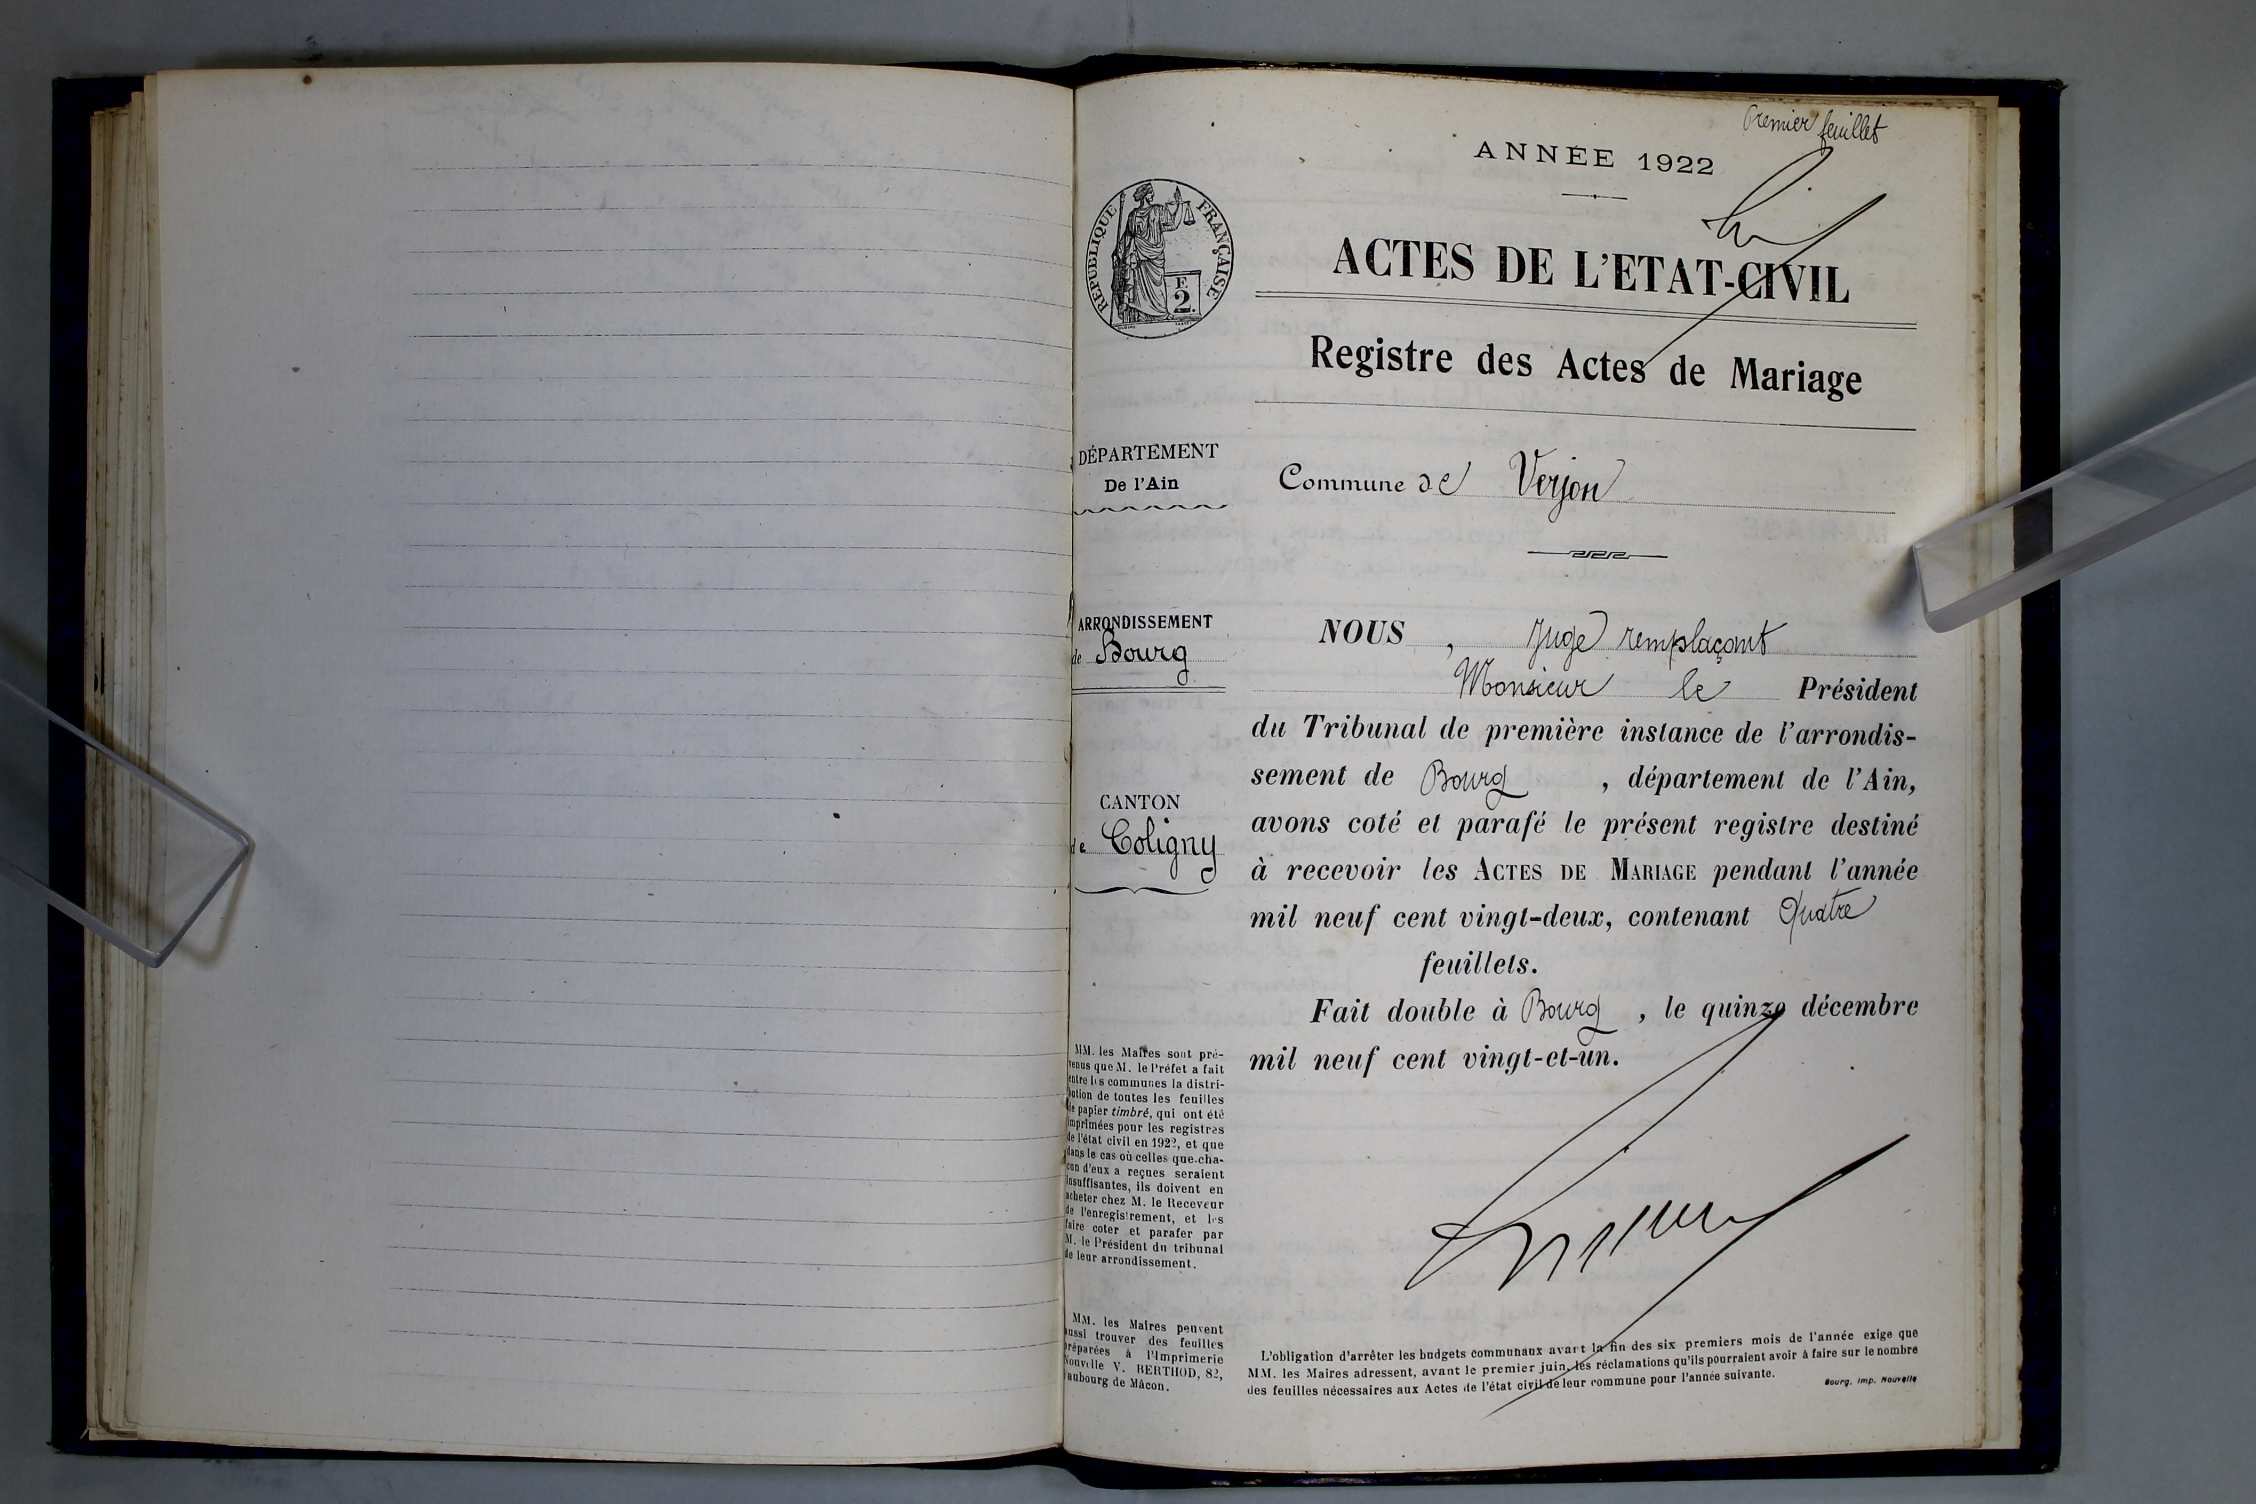 Premier feuillet
ANNÉE 1922
RÉPUBLIQUE FRANÇAISE
E
2.
ACTES DE L'ETAT-CIVIL
Registre des Actes de Mariage
DÉPARTEMENT
De l'Ain
Commune de Verjon
ARRONDISSEMENT
de Bourg
CANTON
de Coligny
NOUS, Juge remplaçant
Monsieur le Président
du Tribunal de première instance de l'arrondis-
sement de Bourg, département de l'Ain,
avons coté et parafé le présent registre destiné
à recevoir les ACTES DE MARIAGE pendant l'année
mil neuf cent vingt-deux, contenant Quatre
feuillets.
Fait double à Bourg, le quinze décembre
mil neuf cent vingt-et-un.
MM. les Maires sont pré-
venus que M. le Préfet a fait
entre les communes la distri-
bution de toutes les feuilles
de papier timbré, qui ont été
imprimées pour les registres
de l'état civil en 1922, et que
dans le cas où celles que cha-
cun d'eux a reçues seraient
insuffisantes, ils doivent en
acheter chez M. le Receveur
de l'enregistrement, et les
faire coter et parafer par
M. le Président du tribunal
de leur arrondissement.
MM. les Maires peuvent
aussi trouver des feuilles
préparées à l'Imprimerie
Nouvelle V. BERTHOD, 82,
faubourg de Mâcon.
L'obligation d'arrêter les budgets communaux avant la fin des six premiers mois de l'année exige que
MM. les Maires adressent, avant le premier juin, les réclamations qu'ils pourraient avoir à faire sur le nombre
des feuilles nécessaires aux Actes de l'état civil de leur commune pour l'année suivante.
Bourg, Imp. Nouvelle